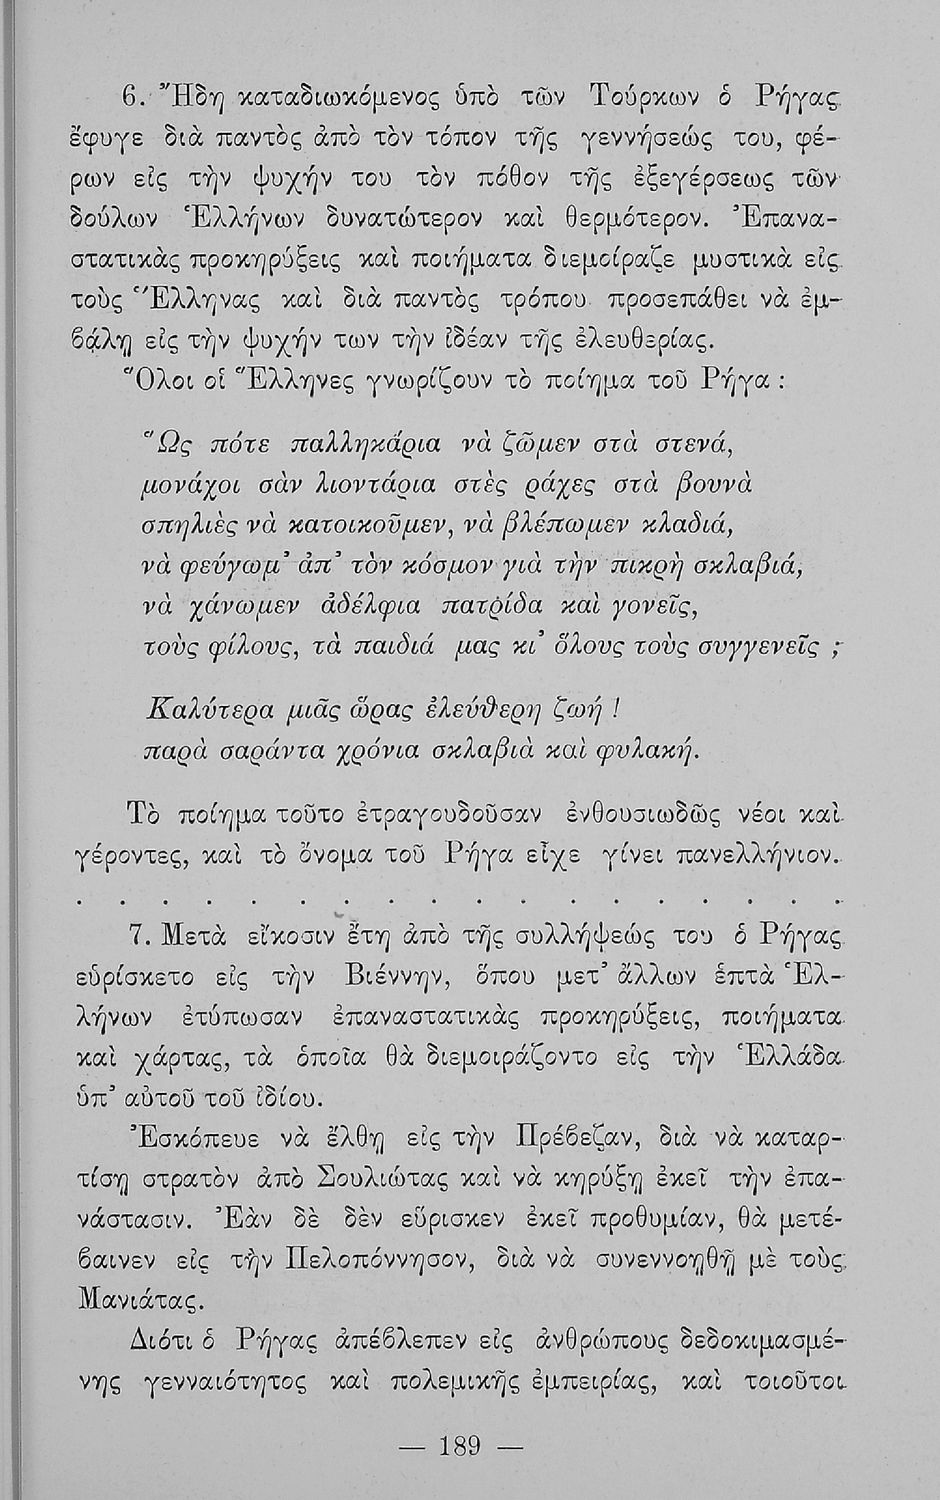 6. Ἤδη καταδιωκόμενος ὑπὸ τῶν Τούρκων ὁ Ρήγας
ἔφυγε διὰ παντὸς ἀπὸ τὸν τόπον τῆς γεννήσεώς του, φέ-
ρων εἰς τὴν ψυχήν του τὸν πόθον τῆς ἐξεγέρσεως τῶν
δούλων Ἑλλήνων δυνατώτερον καὶ θερμότερον. Ἐπανα-
στατικὰς προκηρύξεις καὶ ποιήματα διεμοίραζε μυστικὰ εἰς
τοὺς Ἕλληνας καὶ διὰ παντὸς τρόπου προσεπάθει νὰ ἐμ-
βάλῃ εἰς τὴν ψυχήν των τὴν ἰδέαν τῆς ἐλευθερίας.
Ὅλοι οἱ Ἕλληνες γνωρίζουν τὸ ποίημα τοῦ Ρήγα :
Ὥς πότε παλληκάρια νὰ ζῶμεν στὰ στενά,
μονάχοι σὰν λιοντάρια στὲς ράχες στὰ βουνὰ
σπηλιὲς νὰ κατοικοῦμεν, νὰ βλέπωμεν κλαδιά,
νὰ φεύγωμ᾽ ἀπ᾽ τὸν κόσμον γιὰ τὴν πικρὴ σκλαβιά,
νὰ χάνωμεν ἀδέλφια πατρίδα καὶ γονεῖς,
τοὺς φίλους, τὰ παιδιά μας κι᾽ ὅλους τοὺς συγγενεῖς ;
Καλύτερα μιᾶς ὥρας ἐλεύθερη ζωή !
παρὰ σαράντα χρόνια σκλαβιὰ καὶ φυλακή.
Τὸ ποίημα τοῦτο ἐτραγουδοῦσαν ἐνθουσιωδῶς νέοι καὶ
γέροντες, καὶ τὸ ὄνομα τοῦ Ρήγα εἶχε γίνει πανελλήνιον.
. . . . . . . . . . . . . . . . . .
7. Μετὰ εἴκοσιν ἔτη ἀπὸ τῆς συλλήψεώς του ὁ Ρήγας
εὑρίσκετο εἰς τὴν Βιέννην, ὅπου μετ᾽ ἄλλων ἑπτὰ Ἑλ-
λήνων ἐτύπωσαν ἐπαναστατικὰς προκηρύξεις, ποιήματα
καὶ χάρτας, τὰ ὁποῖα θὰ διεμοιράζοντο εἰς τὴν Ἑλλάδα
ὑπ᾽ αὐτοῦ τοῦ ἰδίου.
Ἐσκόπευε νὰ ἔλθῃ εἰς τὴν Πρέβεζαν, διὰ νὰ καταρ-
τίσῃ στρατὸν ἀπὸ Σουλιώτας καὶ νὰ κηρύξῃ ἐκεῖ τὴν ἐπα-
νάστασιν. Ἐὰν δὲ δὲν εὕρισκεν ἐκεῖ προθυμίαν, θὰ μετέ-
βαινεν εἰς τὴν Πελοπόννησον, διὰ νὰ συνεννοηθῇ μὲ τοὺς
Μανιάτας.
Διότι ὁ Ρήγας ἀπέβλεπεν εἰς ἀνθρώπους δεδοκιμασμέ-
νης γενναιότητος καὶ πολεμικῆς ἐμπειρίας, καὶ τοιοῦτοι
— 189 —